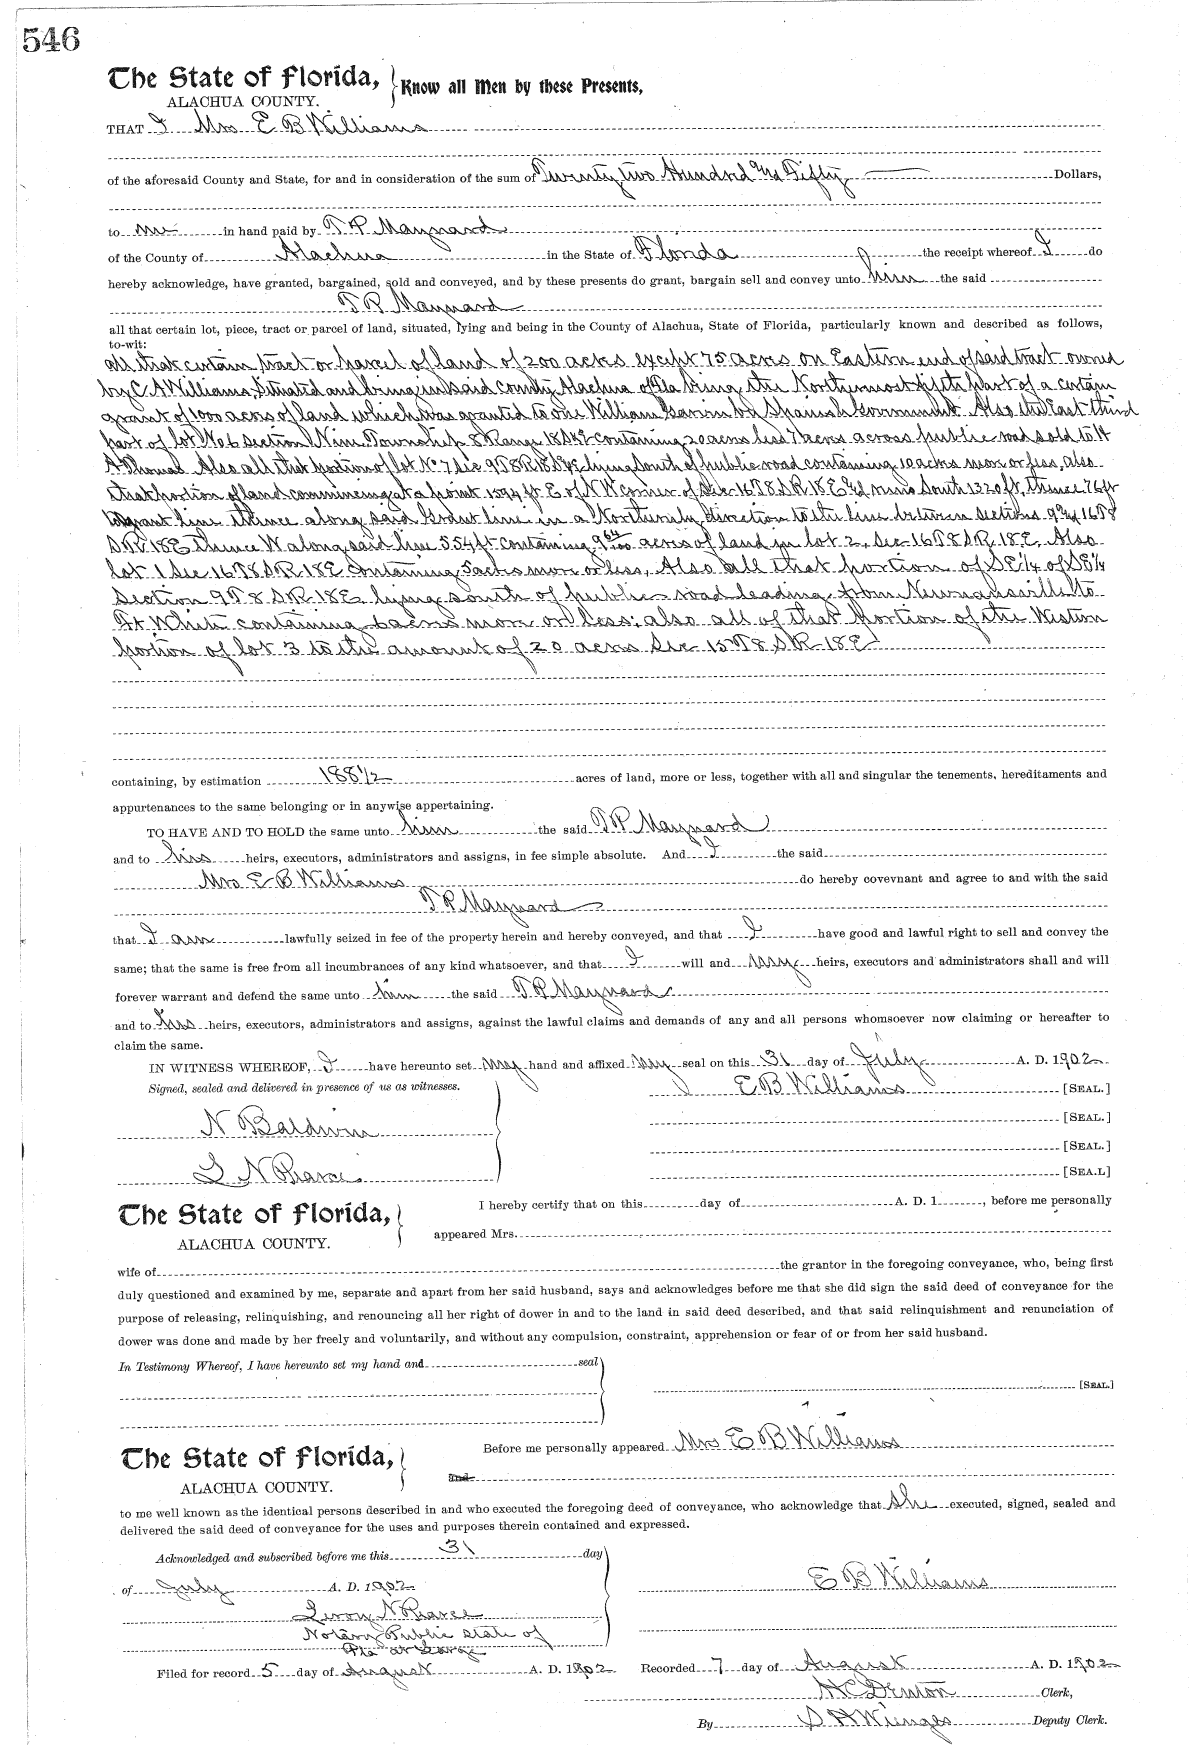 546
The State of Florida,
ALACHUA COUNTY.
Know all Men by these Presents,
THAT I Mrs E B Williams
of the aforesaid County and State, for and in consideration of the sum of Twenty two Hundred and Fifty Dollars,
to me in hand paid by T R Maynard
of the County of Alachua in the State of Florida the receipt whereof I do
hereby acknowledge, have granted, bargained, sold and conveyed, and by these presents do grant, bargain sell and convey unto him the said
T R Maynard
all that certain lot, piece, tract or parcel of land, situated, lying and being in the County of Alachua, State of Florida, particularly known and described as follows,
to-wit:
all that certain tract or parcel of land of 200 acrs except 75 acrs on Eastern end of said tract owned
by C A Williams, Situated and being in said County Alachua of Fla being the Northernmost fifth part of a certain
grant of 1000 acrs of land which was granted to one William Garvin by Spanish Government. Also the East third
part of lot No 6 Section Nine Township 8 Range 18 S & E containing 20 acrs less 7 acrs across public road sold to H
A Thomas Also all that portion of lot No 7 Sec 9 T 8 R 18 S & E lying South of public road containing 10 acrs more or less, also
that portion of land commencing at a point 1594 ft E of N W corner of Sec 16 T 8 S R 18 E and runs South 1320 ft, thence 76 ft
to grant line thence along said Grant line in a Northerly direction to the line between sections 9 and 16 T 8
S R 18 E thence W along said line 554 ft containing 9 64/100 acrs of land in lot 2, Sec 16 T 8 S R 18 E. Also
lot 1 Sec 16 T 8 S R 18 E containing 5 acrs more or less, Also all that portion of SE 1/4 of SE 1/4
Section 9 T 8 S R 18 E lying south of public road leading from Newnansville to
Ft White containing 6 acrs more or less; also all of that portion of the Western
portion of lot 3 to the amount of 20 acrs Sec 15 T 8 S R 18 E
containing, by estimation 188 1/2 acres of land, more or less, together with all and singular the tenements, hereditaments and
appurtenances to the same belonging or in anywise appertaining.
TO HAVE AND TO HOLD the same unto him the said T R Maynard
and to his heirs, executors, administrators and assigns, in fee simple absolute. And I the said
Mrs E B Williams do hereby covevnant and agree to and with the said
T R Maynard
that I am lawfully seized in fee of the property herein and hereby conveyed, and that I have good and lawful right to sell and convey the
same; that the same is free from all incumbrances of any kind whatsoever, and that I will and my heirs, executors and administrators shall and will
forever warrant and defend the same unto him the said T R Maynard
and to his heirs, executors, administrators and assigns, against the lawful claims and demands of any and all persons whomsoever now claiming or hereafter to
claim the same.
IN WITNESS WHEREOF, I have hereunto set my hand and affixed my seal on this 31 day of July A. D. 1902
Signed, sealed and delivered in presence of us as witnesses.
E B Williams [SEAL.]
N Baldwin [SEAL.]
[SEAL.]
L N Pearce [SEA.L]
The State of Florida,
ALACHUA COUNTY.
I hereby certify that on this day of A. D. 1 , before me personally
appeared Mrs.
wife of the grantor in the foregoing conveyance, who, being first
duly questioned and examined by me, separate and apart from her said husband, says and acknowledges before me that she did sign the said deed of conveyance for the
purpose of releasing, relinquishing, and renouncing all her right of dower in and to the land in said deed described, and that said relinquishment and renunciation of
dower was done and made by her freely and voluntarily, and without any compulsion, constraint, apprehension or fear of or from her said husband.
In Testimony Whereof, I have hereunto set my hand and seal
[SEAL.]
The State of Florida,
ALACHUA COUNTY.
Before me personally appeared Mrs E B Williams
and
to me well known as the identical persons described in and who executed the foregoing deed of conveyance, who acknowledge that she executed, signed, sealed and
delivered the said deed of conveyance for the uses and purposes therein contained and expressed.
Acknowledged and subscribed before me this 31 day
of July A. D. 1902
E B Williams
Leroy N Pearce
Notary Public State of
Fla at Large
Filed for record 5 day of August A. D. 1902 Recorded 7 day of August A. D. 1902
H C Denton Clerk,
By S H Wienges Deputy Clerk.